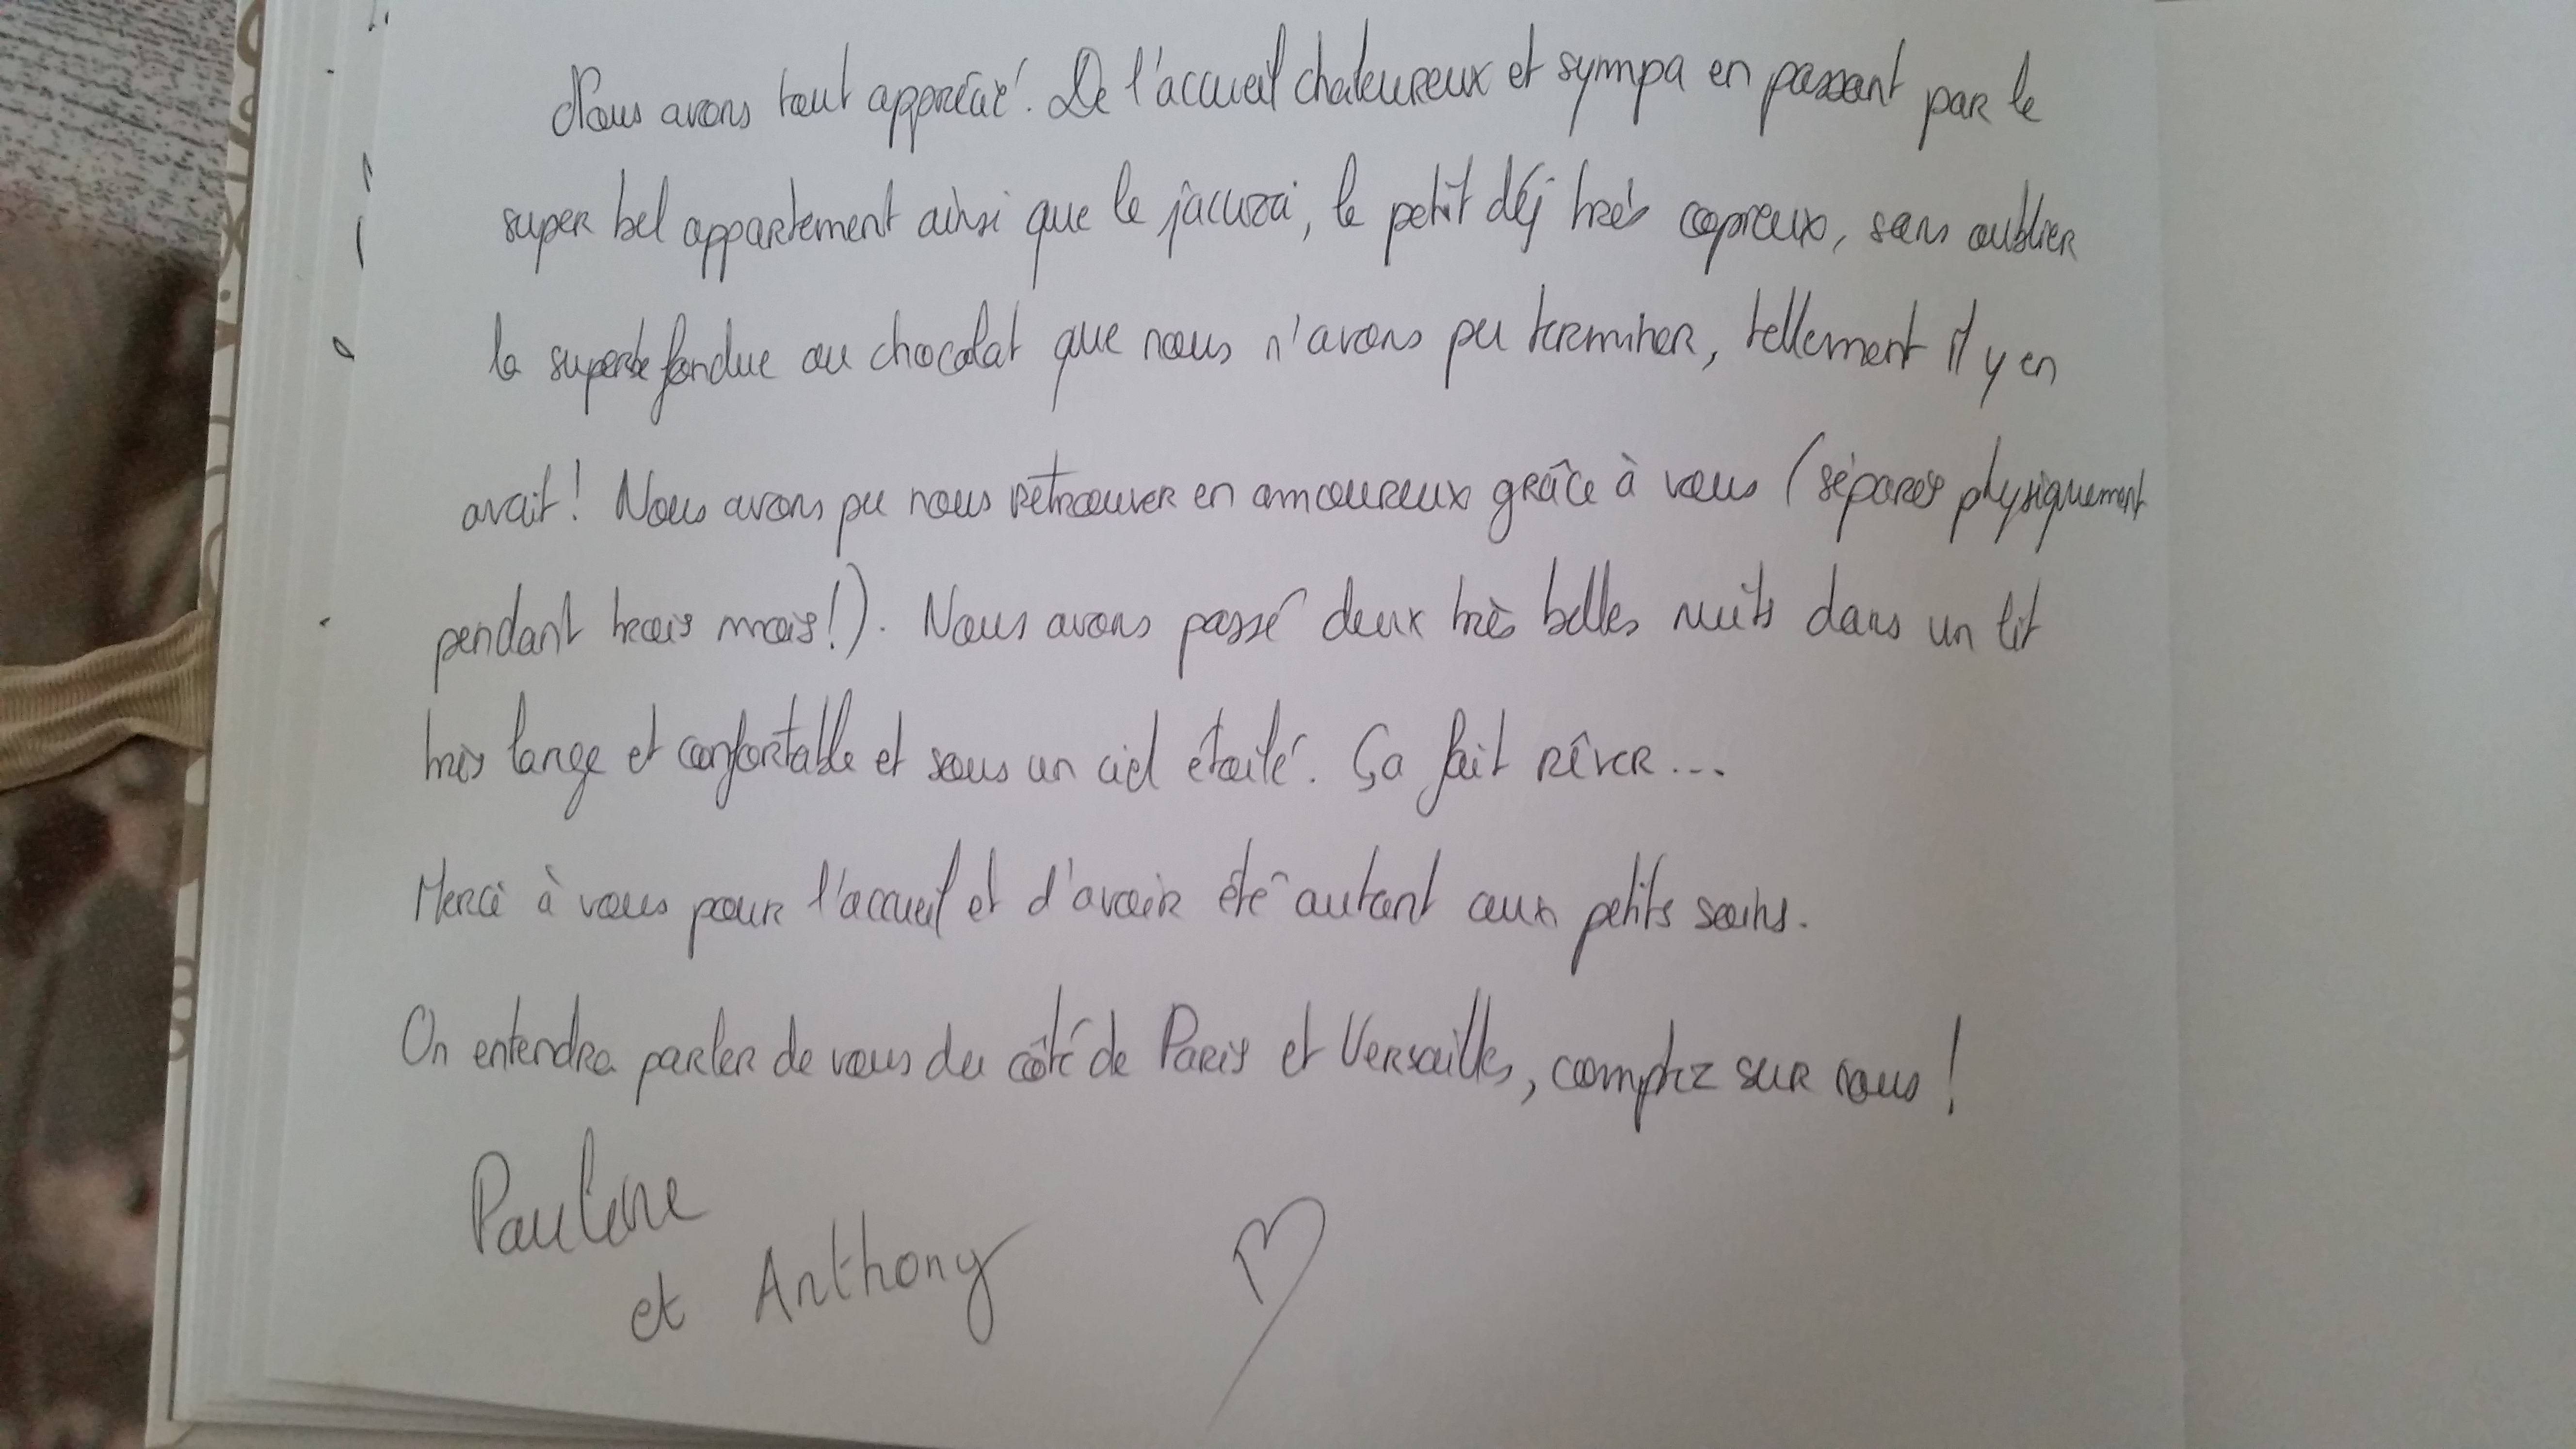 Nous avons tout apprécié. De l'accueil chaleureux et sympa en passant par le
super bel appartement ainsi que le jacuzzi, le petit déj très copieux, sans oublier
la superbe fondue au chocolat que nous n'avons pu terminer, tellement il y en
avait ! Nous avons pu nous retrouver en amoureux grâce à vous (séparés physiquement
pendant trois mois !). Nous avons passé deux très belles nuits dans un lit
très large et confortable et sous un ciel étoilé. Ça fait rêver...
Merci à vous pour l'accueil et d'avoir été autant aux petits soins.
On entendra parler de vous du côté de Paris et Versailles, comptez sur nous !
Pauline
et Anthony